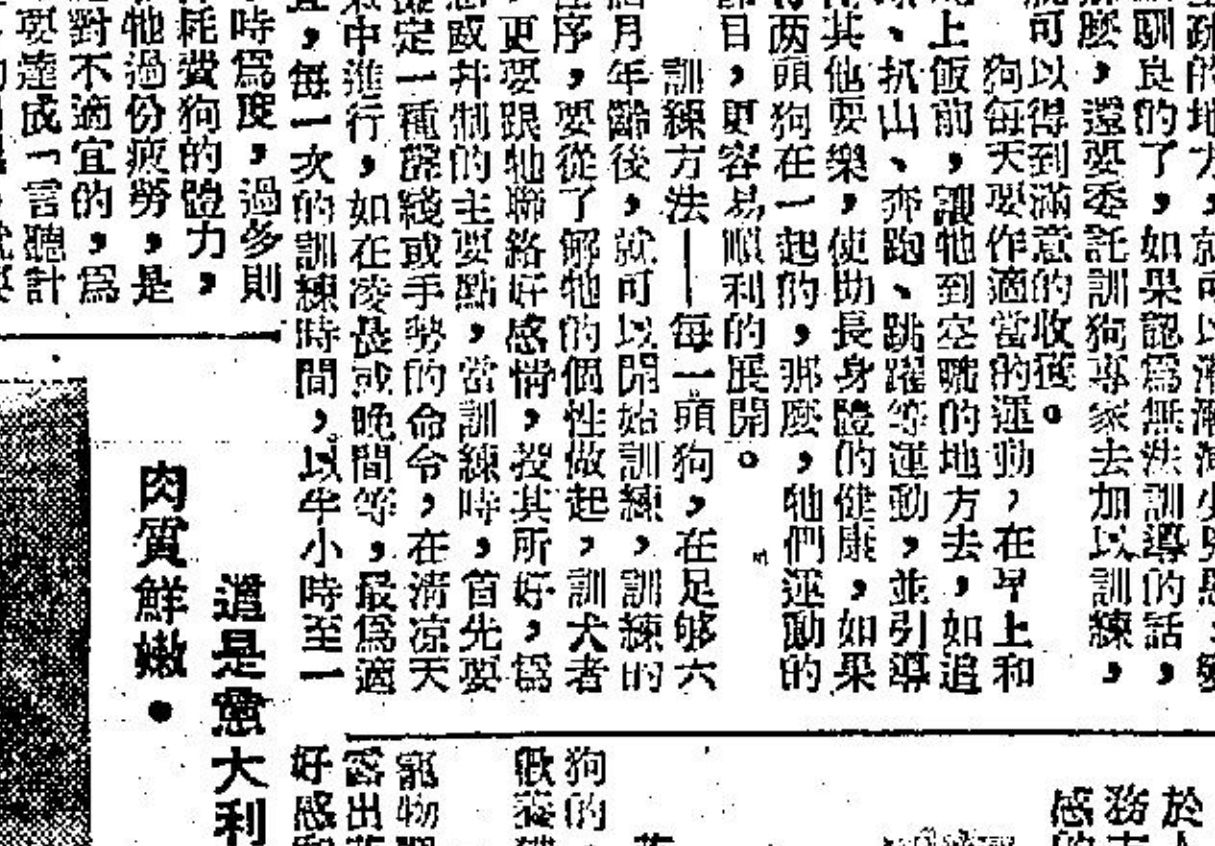 的地方，就可以
馴良的了，如果認為無法訓導的話，
麼，還要委託訓狗專家去加以訓練，
可以得到滿意的收獲。
狗每天要作適當的運動，在早上和
上飯前，讓牠到空曠的地方去，如追
、扒山、奔跑、跳躍等運動，並引導
其他耍樂，使助長身體的健康，如果
两頭狗在一起的，那麼，牠們運動的
目，更容易順利的展開。
訓練方法——每一頭狗，在足够六
月年齡後，就可以開始訓練，訓練的
序，要從了解牠的個性做起，訓犬者
更要跟牠聯絡好感情，投其所好，為
或幷制的主要點，當訓練時，首先要
定一種視綫或手勢的命令，在清凉天
中進行，如在凌晨或晚間等，最為適
，每一次的訓練時間，以半小時至一
時為度，過多則
耗費狗的體力，
牠過份疲勞，是
對不適宜的，為
要達成「言聽計
這是意大利
肉質鮮嫩・
於
務
感
狗的
飼養
寵物
露出
好感